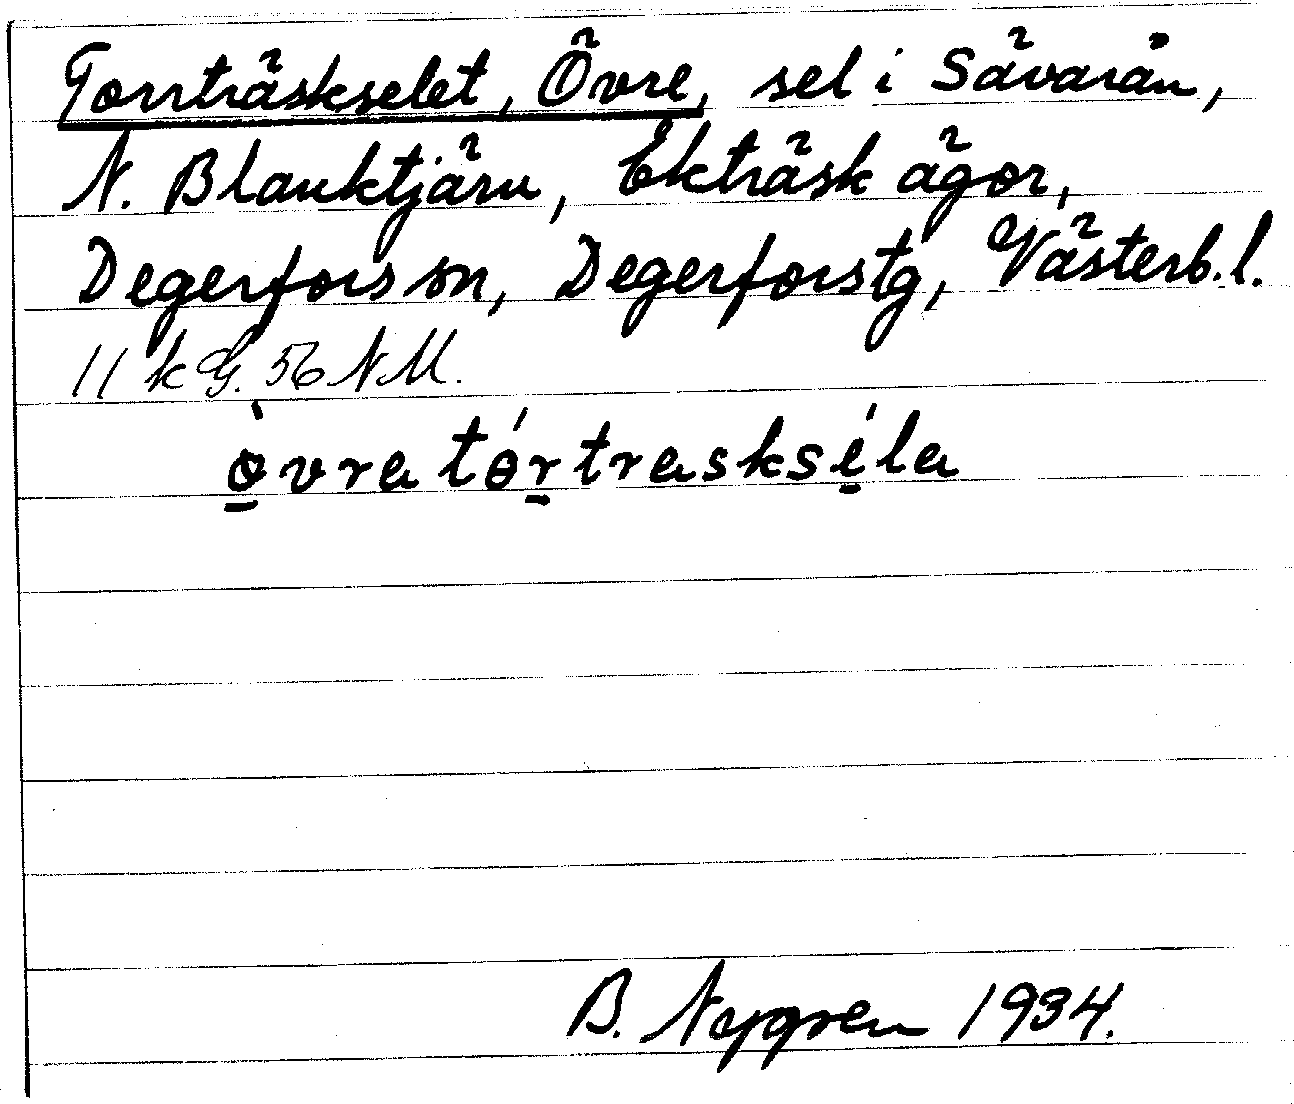 Torrträskselet, Övre, sel i Sävarån,
N. Blanktjärn, Ekträsk ägor,
Degerfors sn, Degerforstg, Västerb. l.
11 k G. 56 N M.
òvra tó̱rtrasksé̱la
B. Nygren 1934.